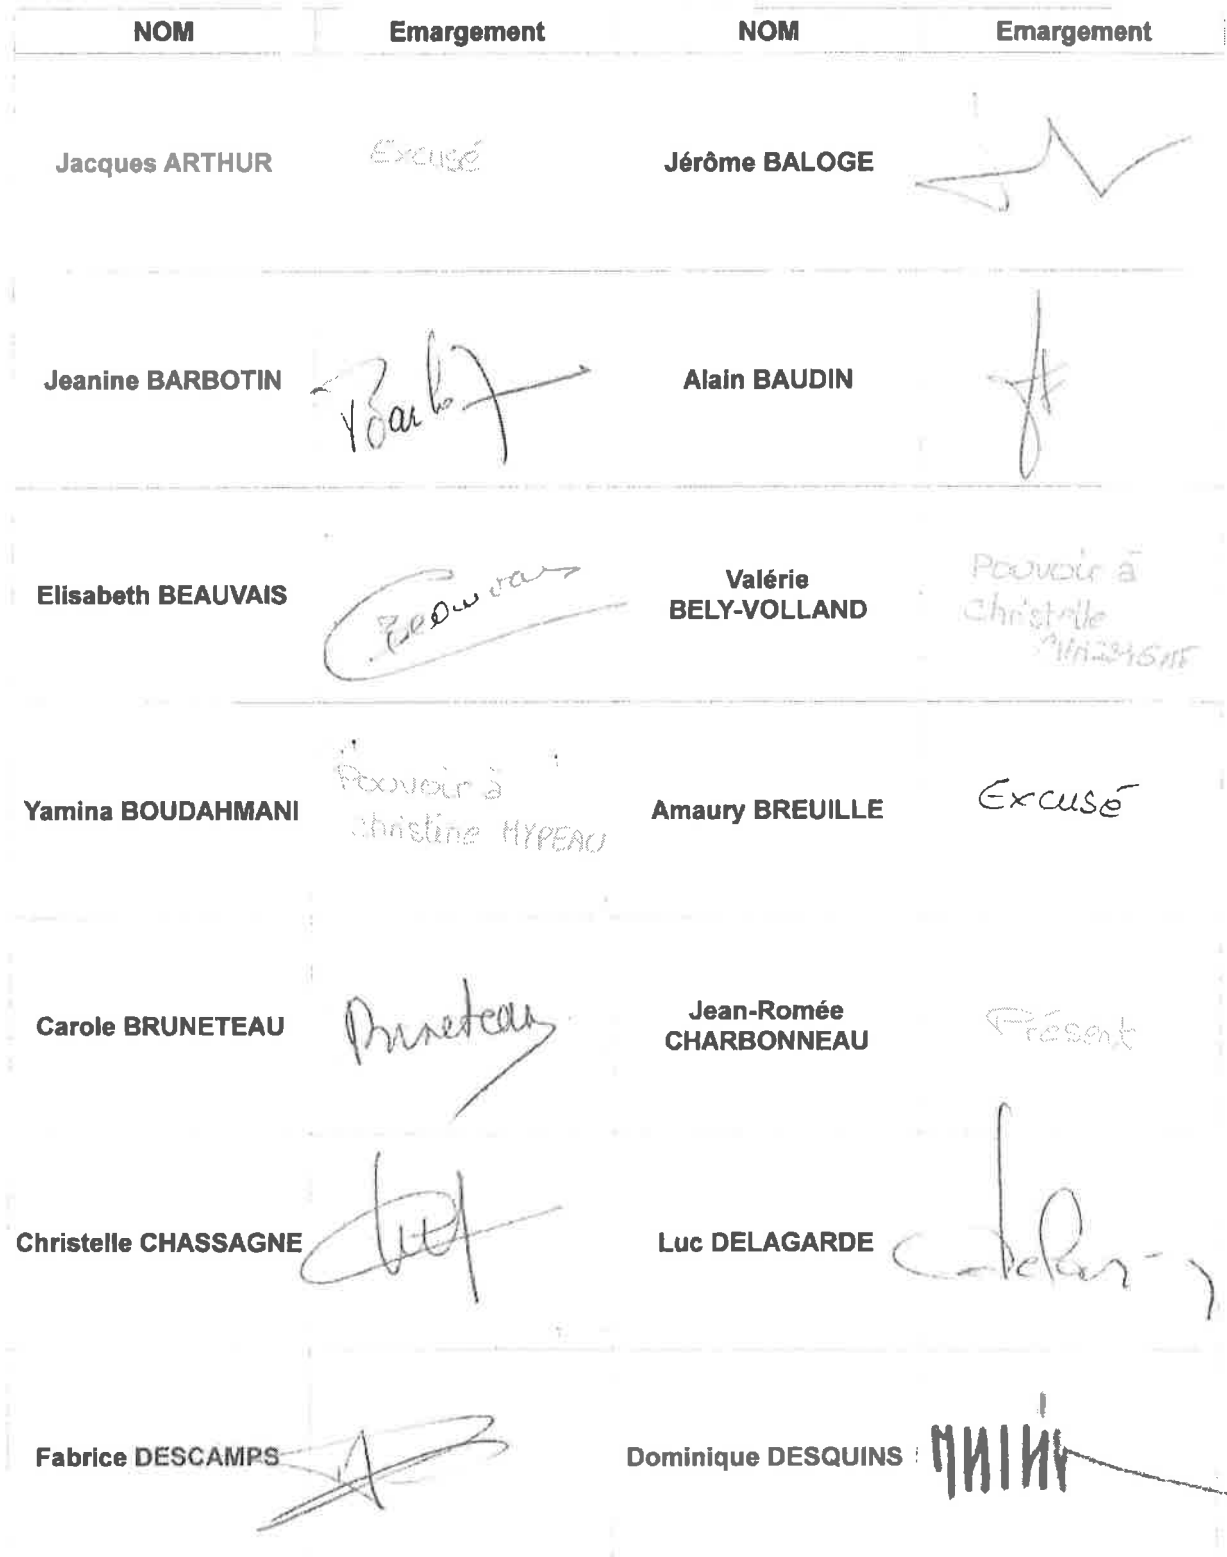 NOM Emargement NOM Emargement
Jacques ARTHUR Excusé Jérôme BALOGE
Jeanine BARBOTIN Alain BAUDIN
Elisabeth BEAUVAIS Beauvais Valérie
BELY-VOLLAND Pouvoir à
Christelle
Yamina BOUDAHMANI Pouvoir à
Christine HYPEAU Amaury BREUILLE Excusé
Carole BRUNETEAU Bruneteau Jean-Romée
CHARBONNEAU Présent
Christelle CHASSAGNE Luc DELAGARDE
Fabrice DESCAMPS Dominique DESQUINS